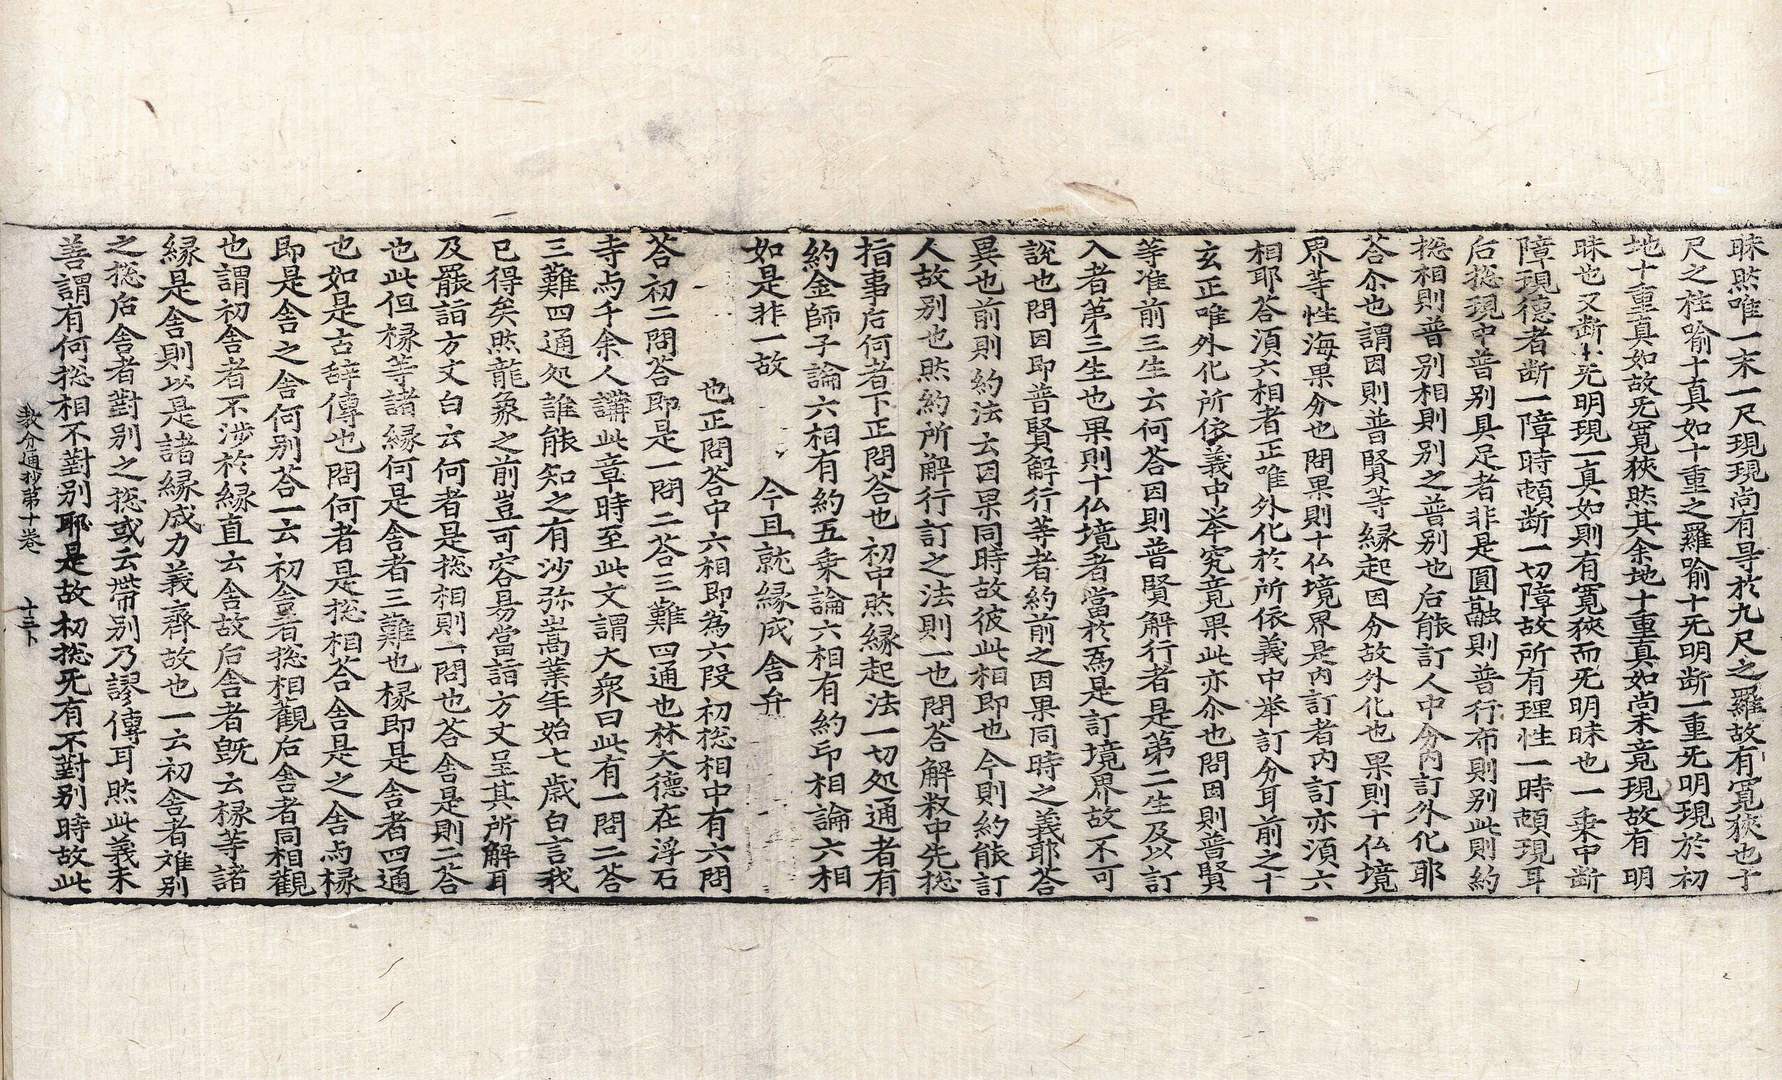 昧然唯一末一尺現現尚有㝵於九尺之羅故有寬狹也于
尺之柱喩十真如十重之羅喩十旡明断一重旡明現於初
地十重真如故旡寬狹然其余地十重真如尚未竟現故有明
昧也又断十旡明現一真如則有寬狹而旡明昧也一乗中断
障現德者断一障時頓断一切障故所有理性一時頓現耳
后捴現中普別具足者非是圓融則普行布則別此則約
捴相則普別相則別之普別也后能訂人中分內訂外化耶
答尒也謂因則普賢等縁起因分故外化也果則十仏境
界等性海果分也問果則十仏境界是內訂者內訂亦湏六
相耶答湏六相者正唯外化於所依義中举訂分耳前之十
玄正唯外化所依義中举究竟果此亦尒也問因則普賢
等准前三生云何答因則普賢解行者是第二生及以訂
入者第三生也果則十仏境者當於為是訂境界故不可
說也問因即普賢解行等者約前之因果同時之義耶答
異也前則約法云因果同時故彼此相即也今則約能訂
人故別也然約所解行訂之法則一也問答解釈中先捴
指事后何者下正問答也初中然縁起法一切処通者有
約金師子論六相有約五乗論六相有約印相論六相
如是非一故 今且就縁成舎弁
也正問答中六相即為六段初捴相中有六問
答初二問答即是一問二答三難四通也林大德在浮石
寺与千余人講此章時至此文謂大衆曰此有一問二答
三難四通処誰能知之有沙弥嵩業年始七歳白言我
已得矣然龍象之前豈可容易當詣方丈呈其所解耳
及罷詣方丈白云何者是捴相則一問也答舎是則二答
也此但椽等諸縁何是舎者三難也椽即是舎者四通
也如是古辞傳也問何者是捴相答舎是之舎与椽
即是舎之舎何別答一云初舎者捴相觀后舎者同相觀
也謂初舎者不渉於縁直云舎故后舎者旣云椽等諸
縁是舎則以是諸縁成力義齊故也一云初舎者难別
之捴后舎者對別之捴或云帶別乃謬傳耳然此義未
善謂有何捴相不對別耶是故初捴旡有不對別時故此
教分通抄第十卷 十三卜